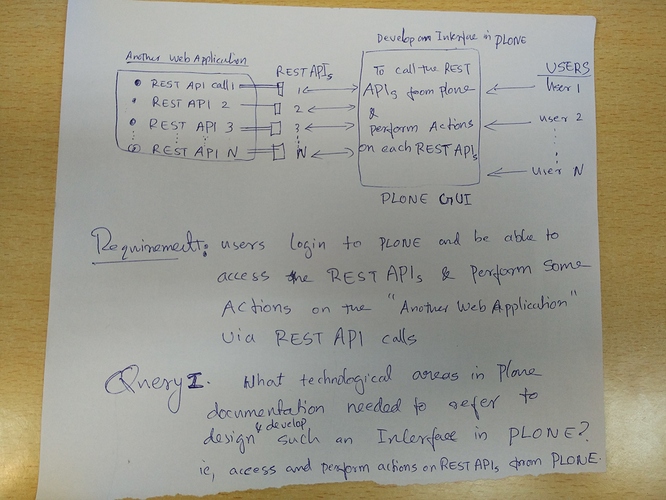 Develop an Interface in PLONE
Another Web Application
REST APIs
USERS
REST API call 1
1
REST API 2
2
REST API 3
3
REST API N
N
To call the REST
APIs from plone
&
perform Actions
on each REST APIs
User 1
user 2
user N
PLONE GUI
Requirement: users login to PLONE and be able to
access the REST APIs & perform some
Actions on the "Another Web Application"
via REST API calls
Query 1. What technological areas in Plone
documentation needed to refer to
design & develop such an Interface in PLONE?
ie, access and perform actions on REST APIs from PLONE.